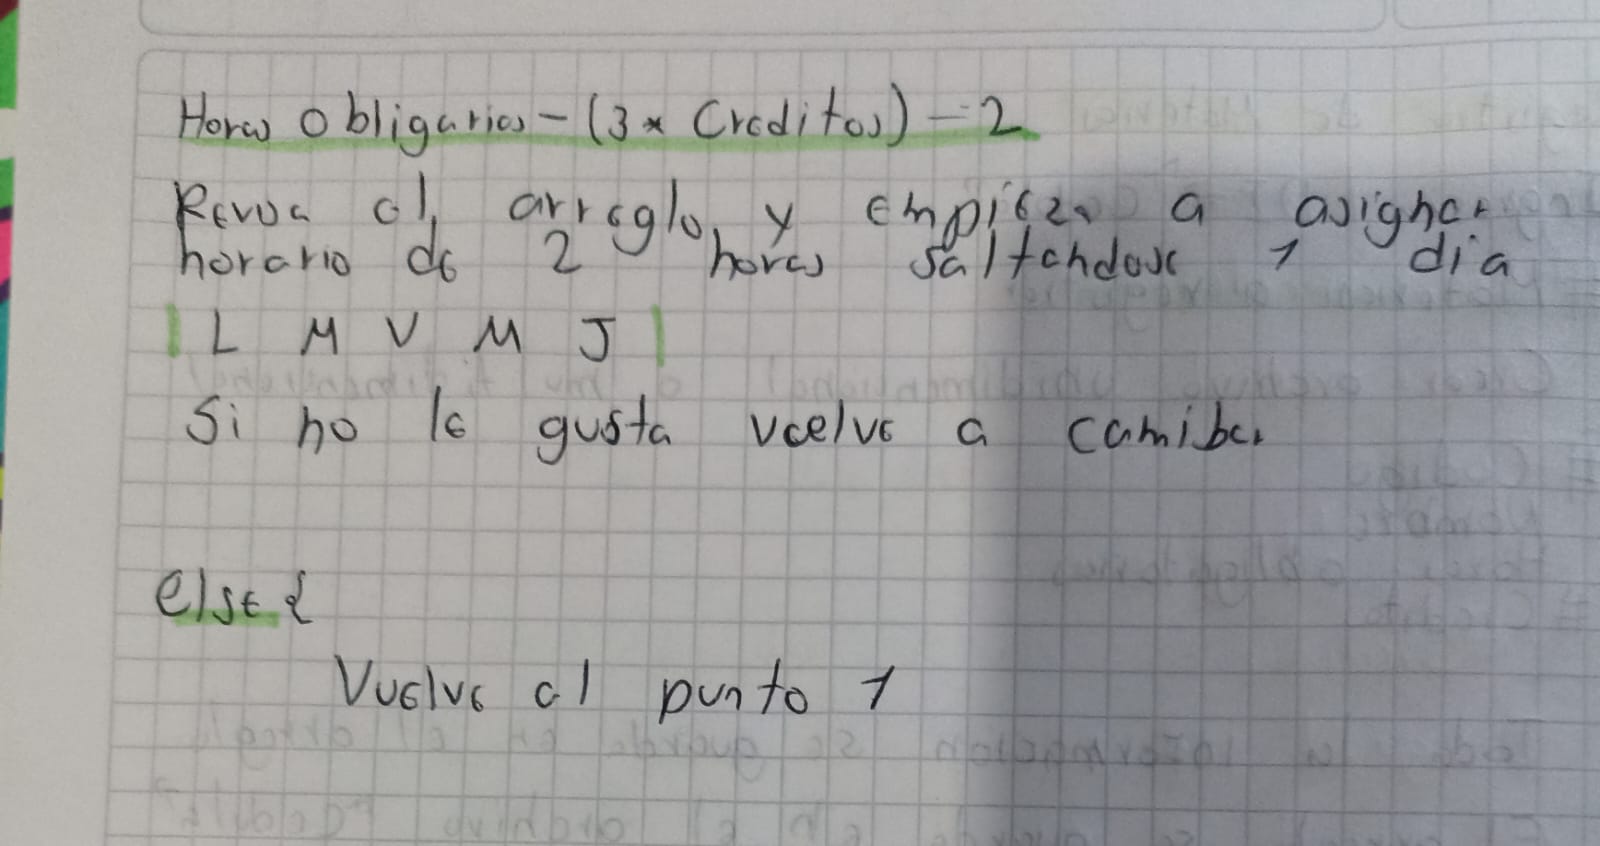 Horas Obligarias - (3 * Creditos) - 2
Revua el arreglo y empieza a asignar
horario de 2 horas saltandose 1 dia
| L M V M J |
Si no le gusta vcelve a camibar
else {
Vuelve al punto 1